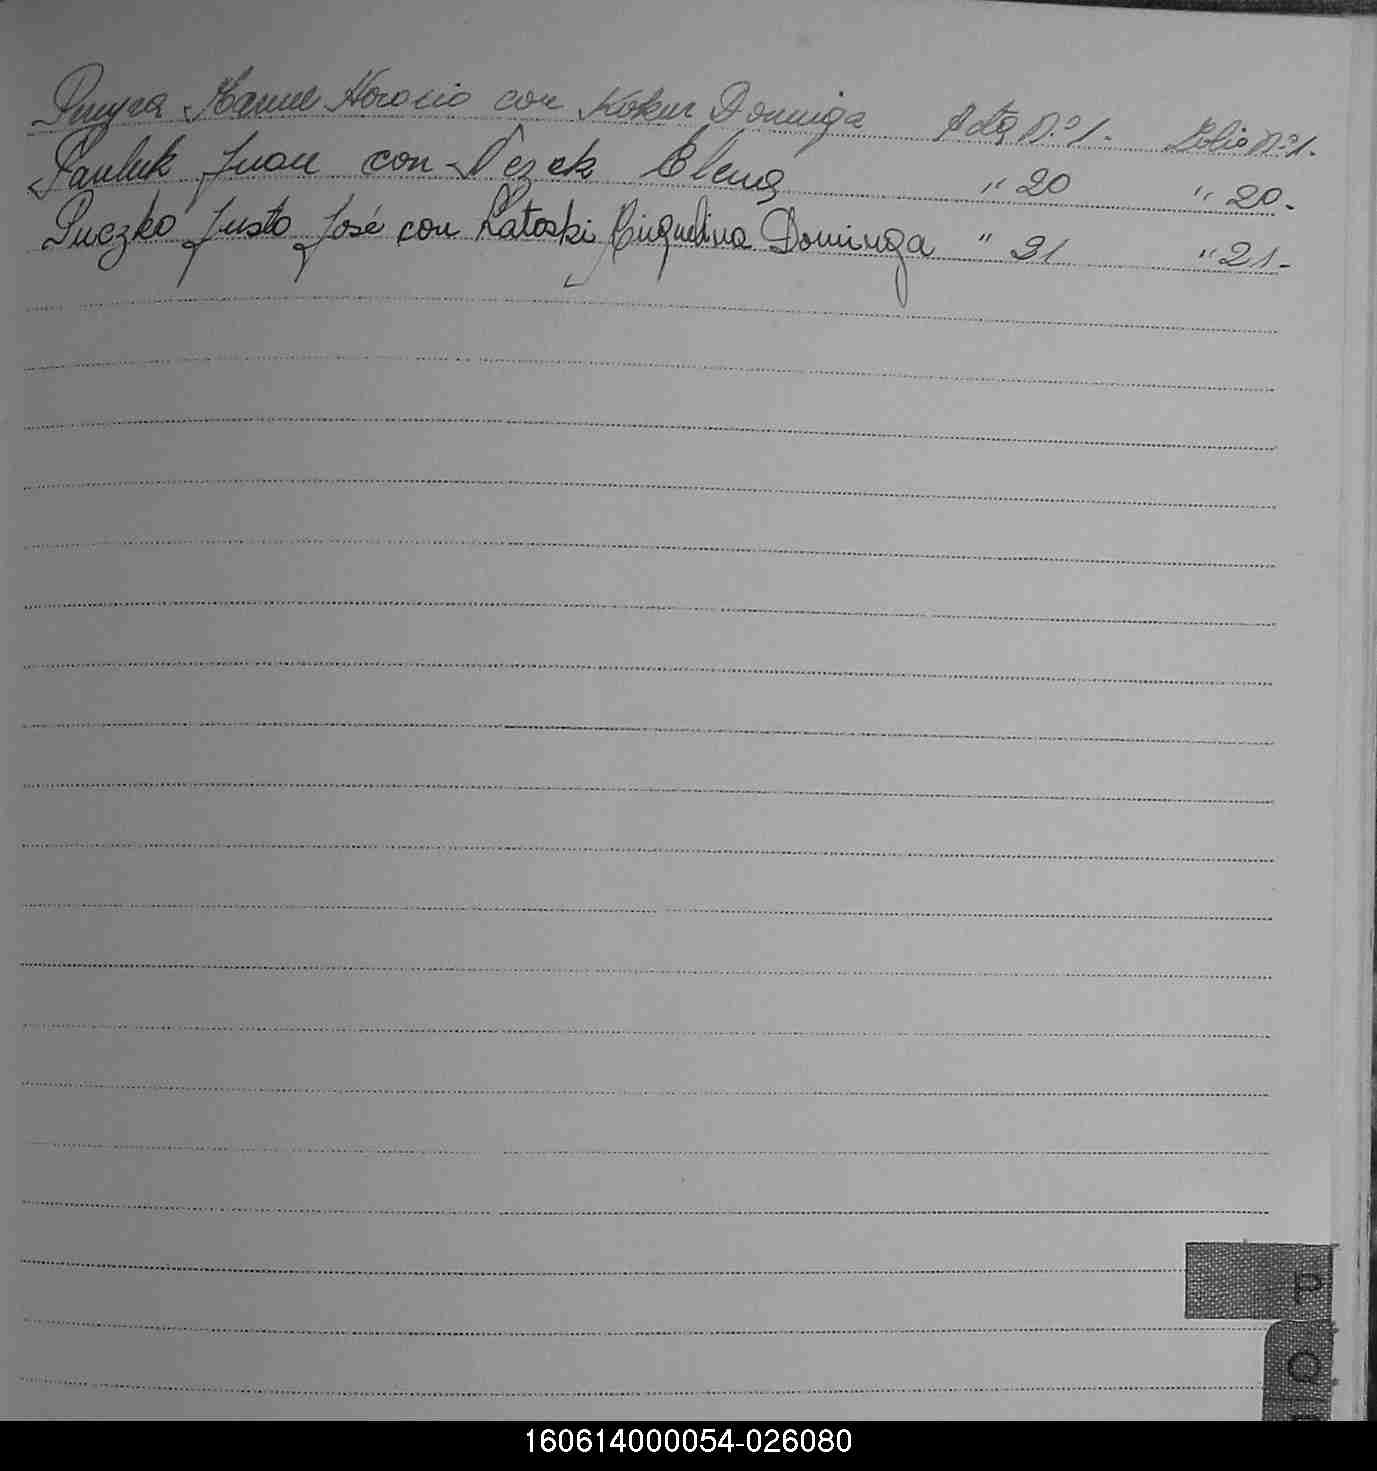 Pinyra Manuel Horacio con Kokur Dominga Acta N.º 1. Folio Nº 1.
Pauluk Juan con Nezek Elena " 20 " 20.
Puczko Justo José con Latoski Miguelina Dominga " 21 " 21-
P
Q
160614000054-026080